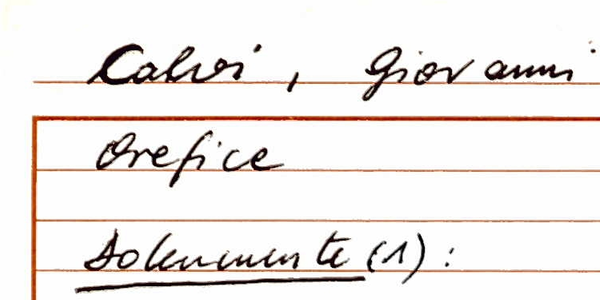 Calvi, Giovanni
Orefice
Solennemente (1):